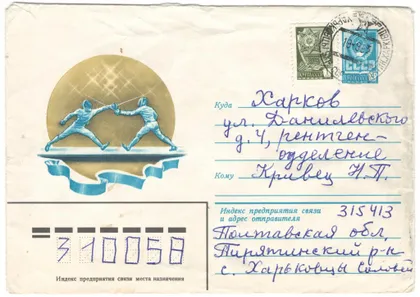 СССР
Куда Харков
ул. Данилевского
д. 4, рентген-
отделение
Кому Кривец Н.П.
Индекс предприятия связи
и адрес отправителя
315413
Полтавская обл,
Пирятинский р-н
с. Харьковцы
310058
Индекс предприятия связи места назначения